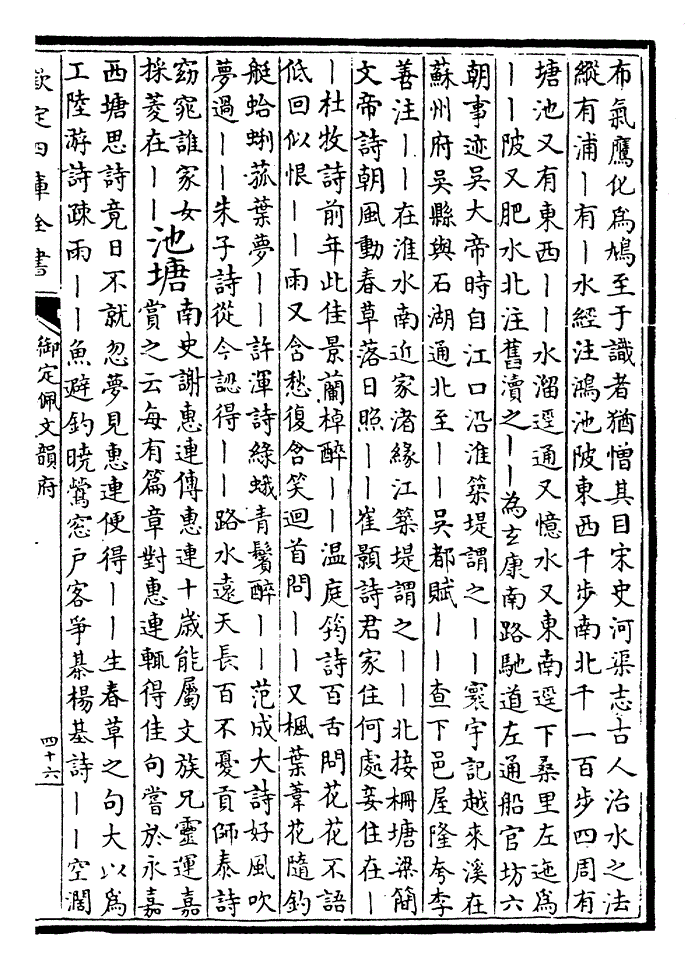 布氣鷹化為鳩至于識者猶憎其目宋史河渠志古人治水之法
縱有浦丨有丨水經注鴻池陂東西千步南北千一百步四周有
塘池又有東西丨丨水溜逕通又憶水又東南逕下桑里左迤為
丨丨陂又肥水北注舊瀆之丨丨為玄康南路馳道左通船官坊六
朝事迹吳大帝時自江口沿淮築堤謂之丨丨寰宇記越來溪在
蘇州府吳縣與石湖通北至丨丨吳都賦丨丨查下邑屋隆夸李
善注丨丨在淮水南近家渚緣江築堤謂之丨丨北接柵塘梁簡
文帝詩朝風動春草落日照丨丨崔顥詩君家住何處妾住在丨
丨杜牧詩前年此佳景蘭棹醉丨丨温庭筠詩百舌問花花不語
低回似恨丨丨雨又含愁復含笑迴首問丨丨又楓葉葦花隨釣
艇蛤蜊菰葉夢丨丨許渾詩綠蛾青鬢醉丨丨范成大詩好風吹
夢過丨丨朱子詩從今認得丨丨路水遠天長百不憂貢師泰詩
窈窕誰家女
採菱在丨丨
池塘
南史謝惠連傳惠連十歲能屬文族兄靈運嘉
賞之云每有篇章對惠連輒得佳句嘗於永嘉
西塘思詩竟日不就忽夢見惠連便得丨丨生春草之句大以為
工陸游詩疎雨丨丨魚避釣曉鶯窓户客爭棊楊基詩丨丨空濶
欽定四庫全書
御定佩文韻府
四十六